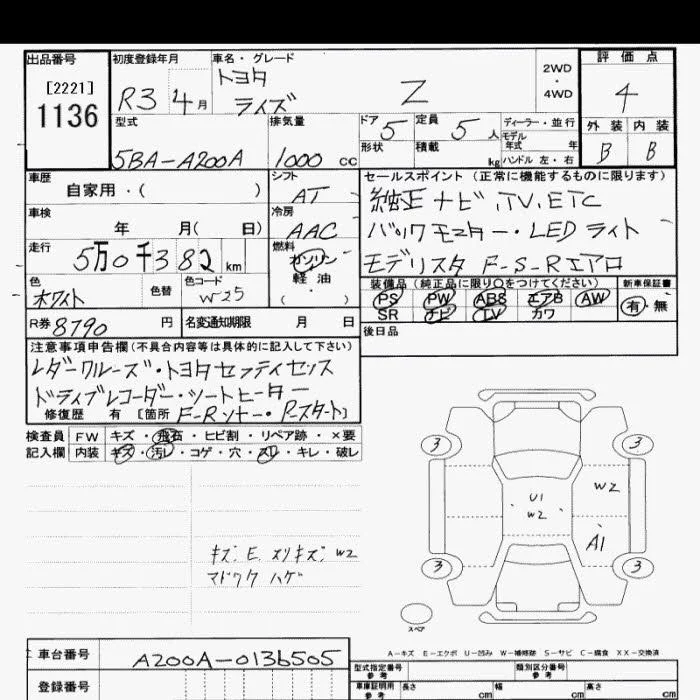 出品番号
[2221]
1136
初度登録年月
R3 4月
車名・グレード
トヨタ
ライズ Z
2WD
・
4WD
評価点
4
外装 内装
B B
型式
5BA-A200A
排気量
1000 cc
ドア 5
定員 5人
形状
積載 kg
ディーラー・並行
モデル
年式 年
ハンドル 左・右
車歴
自家用・( )
シフト
AT
車検
年 月( 日)
冷房
AAC
走行
5万0千382 km
燃料
ガソリン
軽油
( ・ )
色
ホワイト
色替
色コード
W25
R券 8790 円
名変通知期限 月 日
セールスポイント (正常に機能するものに限ります)
純正ナビ,TV,ETC
バックモニター・LEDライト
モデリスタ F-S-Rエアロ
装備品 (純正品に限り○をつけてください)
PS PW ABS エアB AW
SR ナビ TV カワ
新車保証書
有・無
後日品
注意事項申告欄 (不具合内容等は具体的に記入して下さい)
レダークルーズ・トヨタセフティセンス
ドライブレコーダー・シートヒーター
修復歴 有 [箇所 F-Rソナー・Pスタート]
検査員
記入欄
FW キズ・飛石・ヒビ割・リペア跡・×要
内装 キズ・汚レ・コゲ・穴・スレ・キレ・破レ
キズ,E,スリキズ,W2
マドワク ハゲ
3 3
U1
W2
W2
A1
3 3
スペア
A-キズ E-エクボ U-凹み W-補修跡 S-サビ C-腐食 XX-交換済
車台番号
A200A-0136505
登録番号
型式指定番号
参考
類別区分番号
参考
車庫証明用
参考
長さ cm
幅 cm
高さ cm